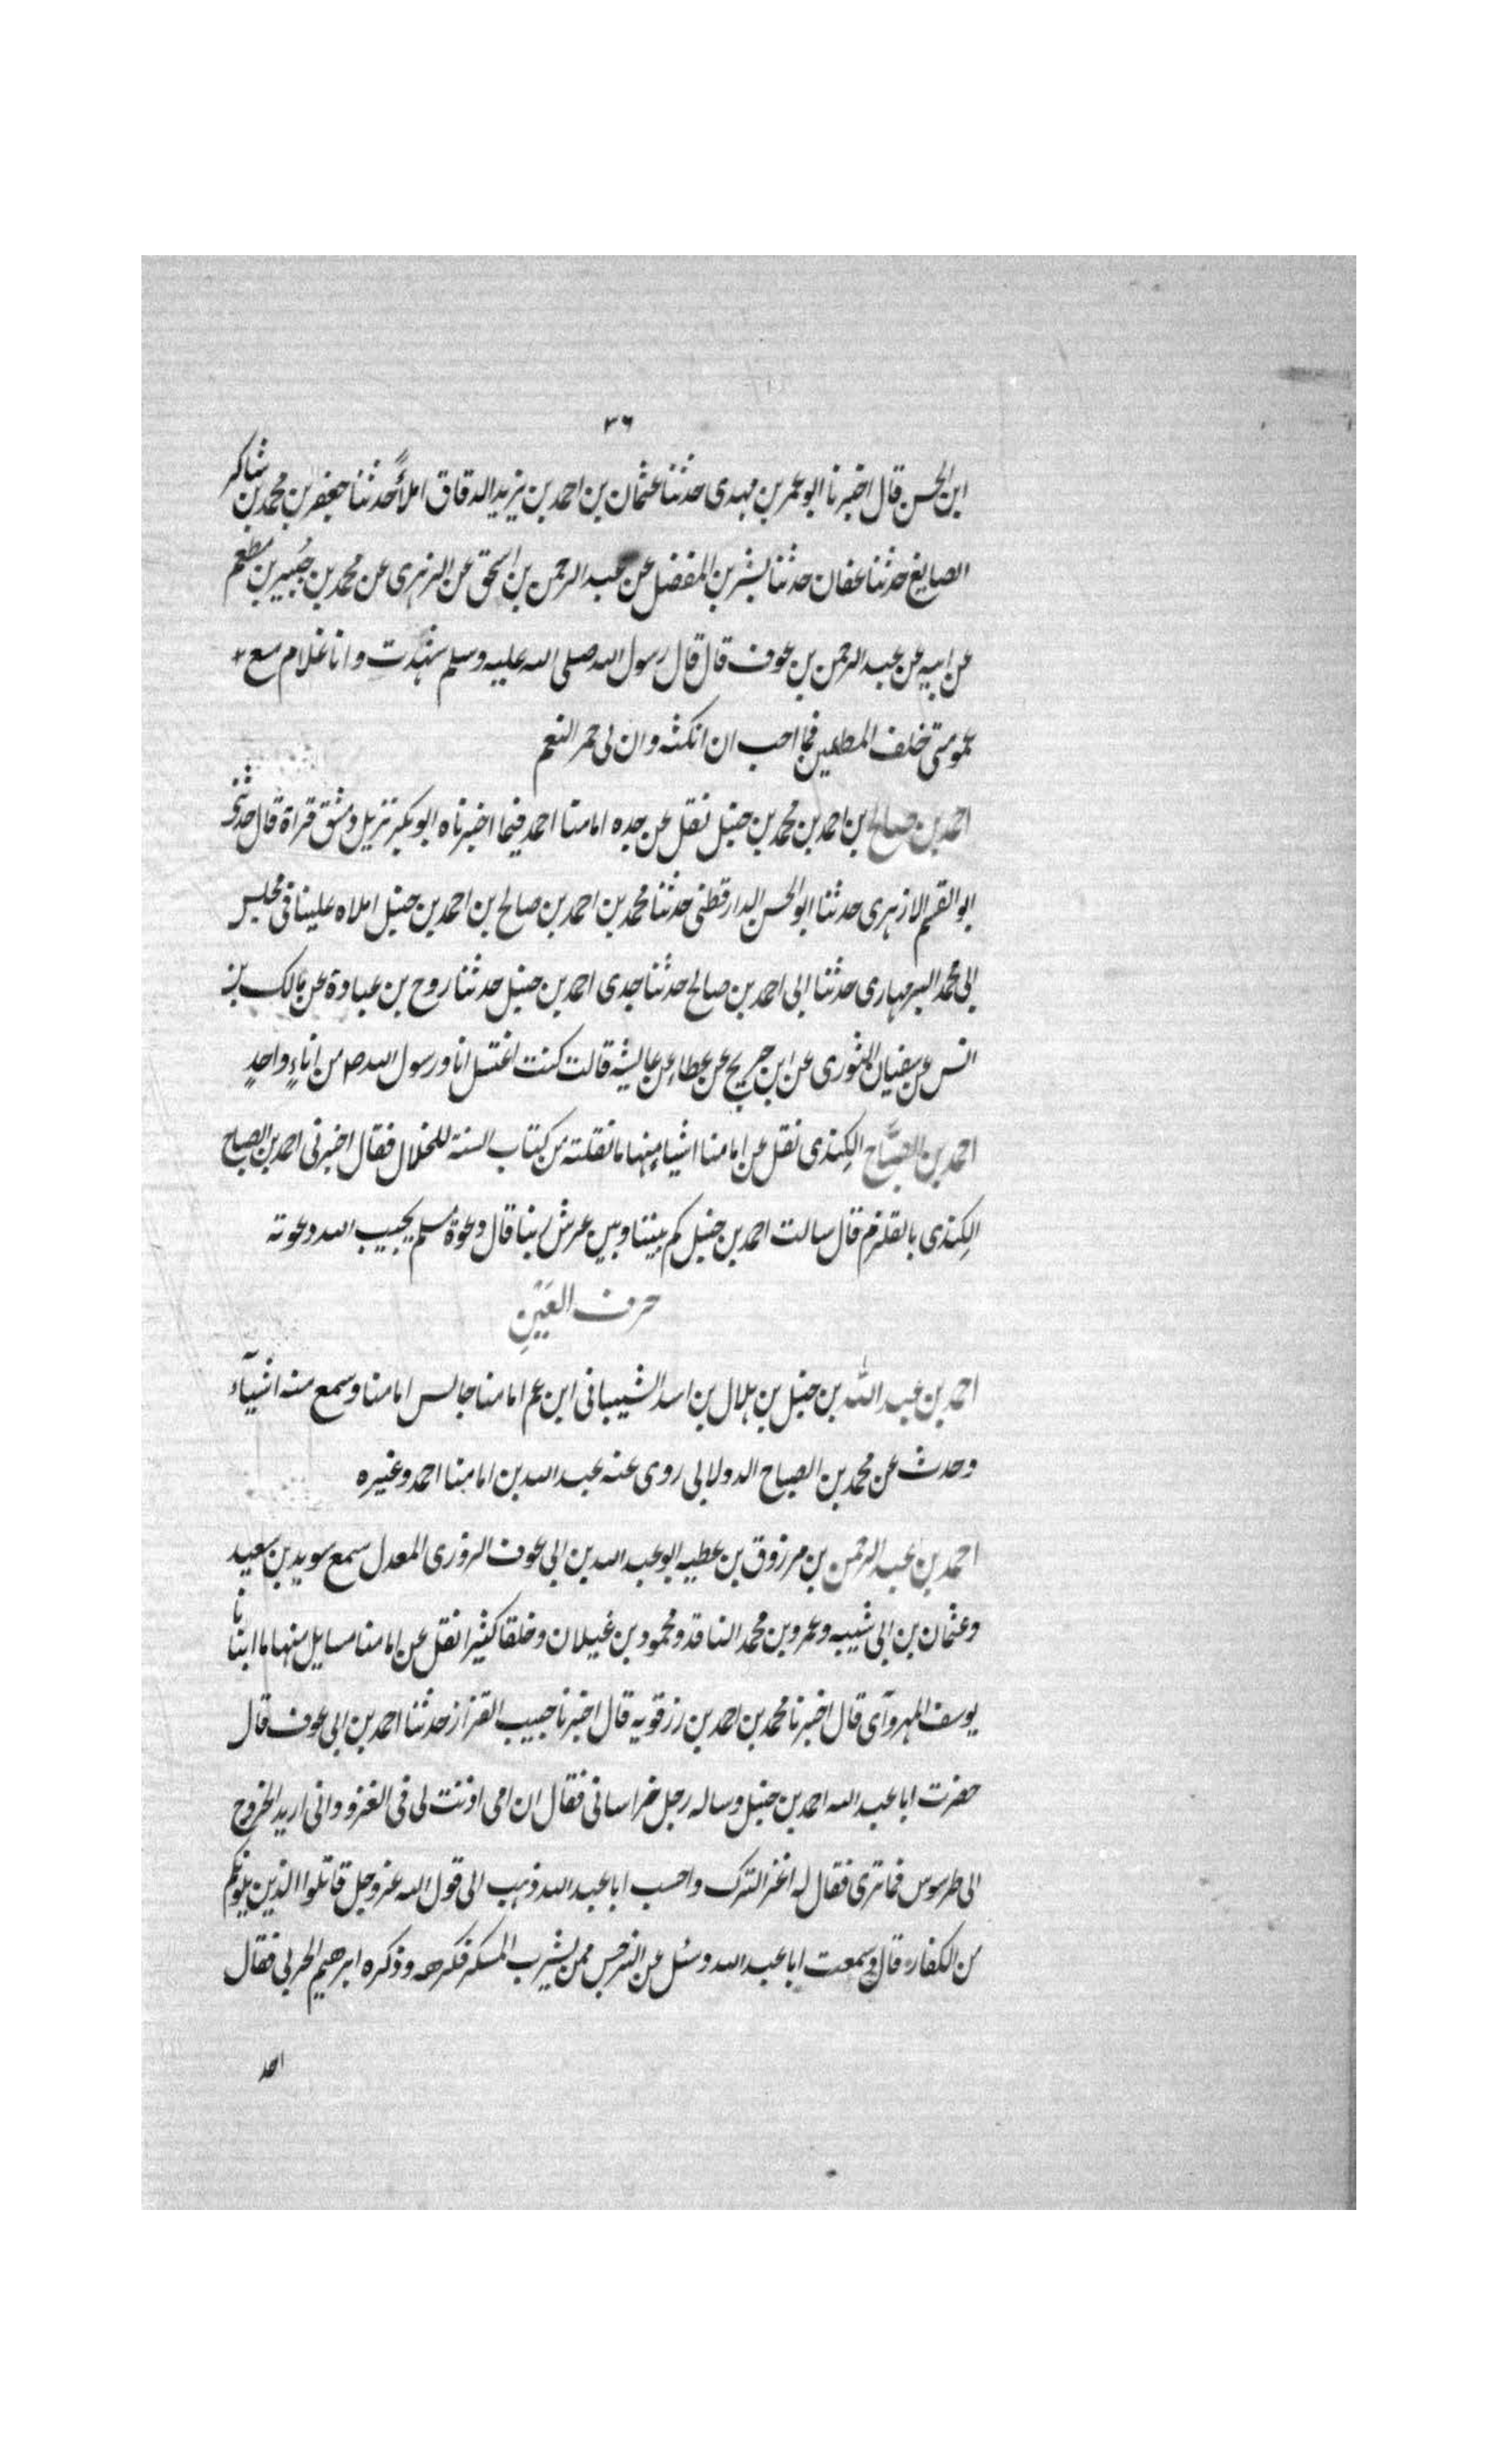 ٣٦
ابن الحسن قال اخبرنا ابو عمر بن مهدى حدثنا عثمان بن احمد بن يزيد الدقاق املأً حدثنا جعفر بن محمد بن شاكر
الصايغ حدثنا عفان حدثنا بشر بن المفضل عن عبد الرحمن بن اسحق عن الزهرى عن محمد بن جُبَير بن مطعم
عن ابيه عن عبد الرحمن بن عوف قال قال رسول الله صلى الله عليه وسلم شهدت وانا غلام مع
عمومتى خلف المطيبين فما احب ان انكثه وان لى حمر النعم
احمد بن صالح بن احمد بن محمد بن حنبل نقل عن جده امامنا احمد فيما اخبرناه ابو بكر نزيل دمشق قراة قال حدثنى
ابو القسم الازهرى حدثنا ابو الحسن الدارقطنى حدثنا محمد بن احمد بن صالح بن احمد بن حنبل املاه علينا فى مجلس
ابى محمد البربهارى حدثنا ابى احمد بن صالح حدثنا جدى احمد بن حنبل حدثنا روح بن عبادة عن مالك بن
انس عن سفيان الثورى عن ابن جريج عن عطاء عن عايشة قالت كنت اغتسل انا ورسول الله ص من اناءٍ واحدٍ
احمد بن الصبَّاح الكِندى نقل عن امامنا اشياء منها ما نقلته من كتاب السنة للخلال فقال اخبرنى احمد بن الصباح
الكِندى بالقلزم قال سالت احمد بن حنبل كم بيننا وبين عرش ربنا قال دعوة مسلم يجيب الله دعوته
حرف العَيْنِ
احمد بن عبد الله بن حنبل بن هلال بن اسد الشيبانى ابن عم امامنا جالس امامنا وسمع منه اشيآء
وحدث عن محمد بن الصباح الدولابى روى عنه عبد الله بن امامنا احمد وغيره
احمد بن عبد الرحمن بن مرزوق بن عطيه ابو عبد الله بن ابى عوف الزورى المعدل سمع سويد بن سعيد
وعثمان بن ابى شيبه وعمرو بن محمد الناقد ومحمود بن غيلان وخلقا كثيرا نقل عن امامنا مسايل منها ما انبانا
يوسف المهروآى قال اخبرنا محمد بن احمد بن رزقويه قال اخبرنا حبيب القزاز حدثنا احمد بن ابى عوف قال
حضرت ابا عبد الله احمد بن حنبل وساله رجل خراسانى فقال ان امى اذنت لى فى الغزو وانى اريد الخروج
الى طرسوس فما ترى فقال له اغز الترك واحسب ابا عبد الله ذهب الى قول الله عز وجل قاتلوا الذين يلونكم
من الكفار قال وسمعت ابا عبد الله وسئل عن النرجس ممن يشرب المسكر فكرهه وذكره ابرهيم الحربى فقال
احمد